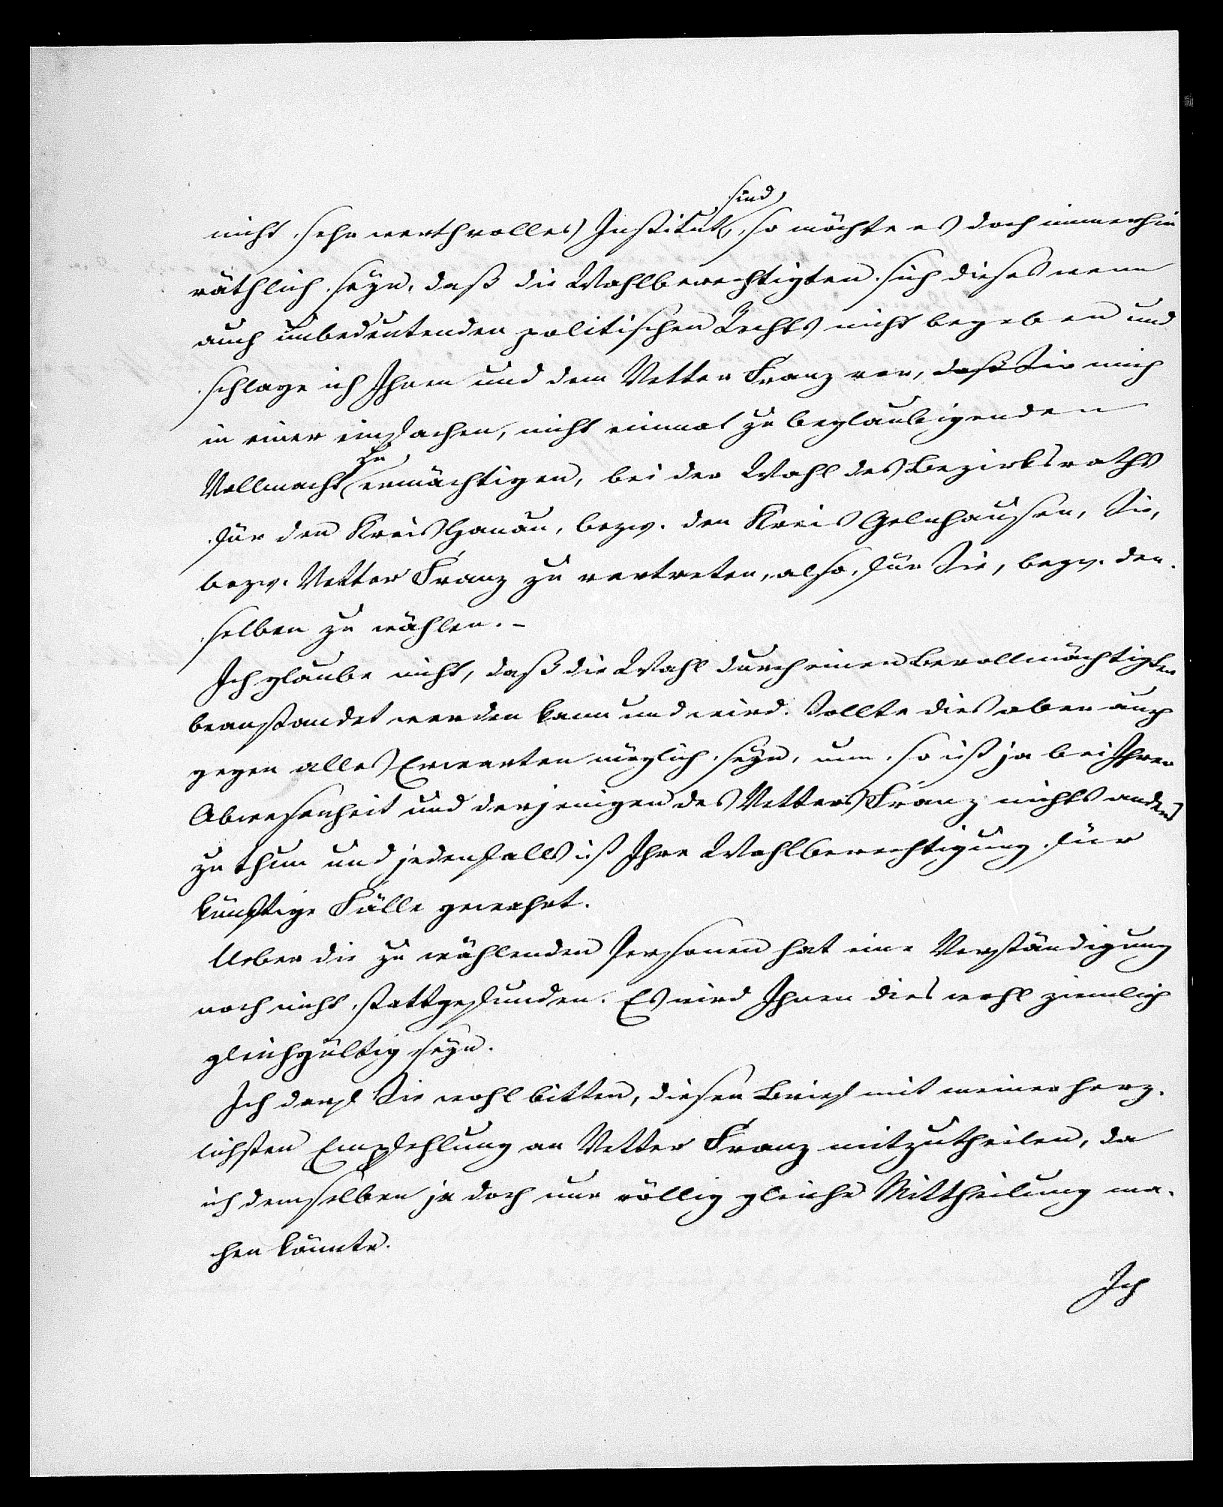 nicht sehr werthvolles Institut sind, so möchte es doch immerhin
räthlich seyn, daß die Wahlberechtigten sich dieses wenn
auch unbedeutenden politischen Rechts nicht begeben und
schlage ich Ihnen und dem Vetter Franz vor, daß Sie mich
in einer einfachen, nicht einmal zu beglaubigenden
Vollmacht zu ermächtigen, bei der Wahl des Bezirksraths
für den Kreis Hanau, bezw. den Kreis Gelnhausen, Sie,
bezw. Vetter Franz zu vertreten, also für Sie, bezw. den-
selben zu wählen. –
Ich glaube nicht, daß die Wahl durch einen Bevollmächtigten
beanstandet werden kann und wird. Sollte dies aber auch
gegen alles Erwarten möglich seyn, nun so ist ja bei Ihrer
Abwesenheit und derjenigen des Vetters Franz nichts anders
zu thun und jedenfalls ist Ihre Wahlberechtigung für
künftige Fälle gewahrt.
Ueber die zu wählenden Personen hat eine Verständigung
noch nicht stattgefunden. Es wird Ihnen dies wohl ziemlich
gleichgültig seyn.
Ich darf Sie wohl bitten, diesen Brief mit meiner herz-
lichsten Empfehlung an Vetter Franz mitzutheilen, da
ich demselben ja doch nur völlig gleiche Mittheilung ma-
chen könnte.
Ich